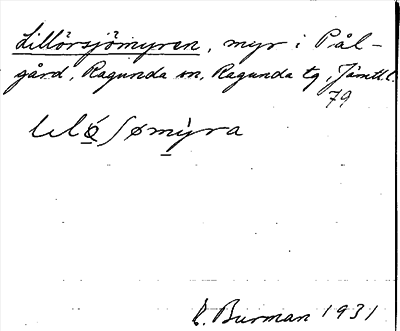 Lillörsjömyren, myr i Pål-
gård, Ragunda sn, Ragunda tg, Jämtl. l.
79
D. Burman 1931